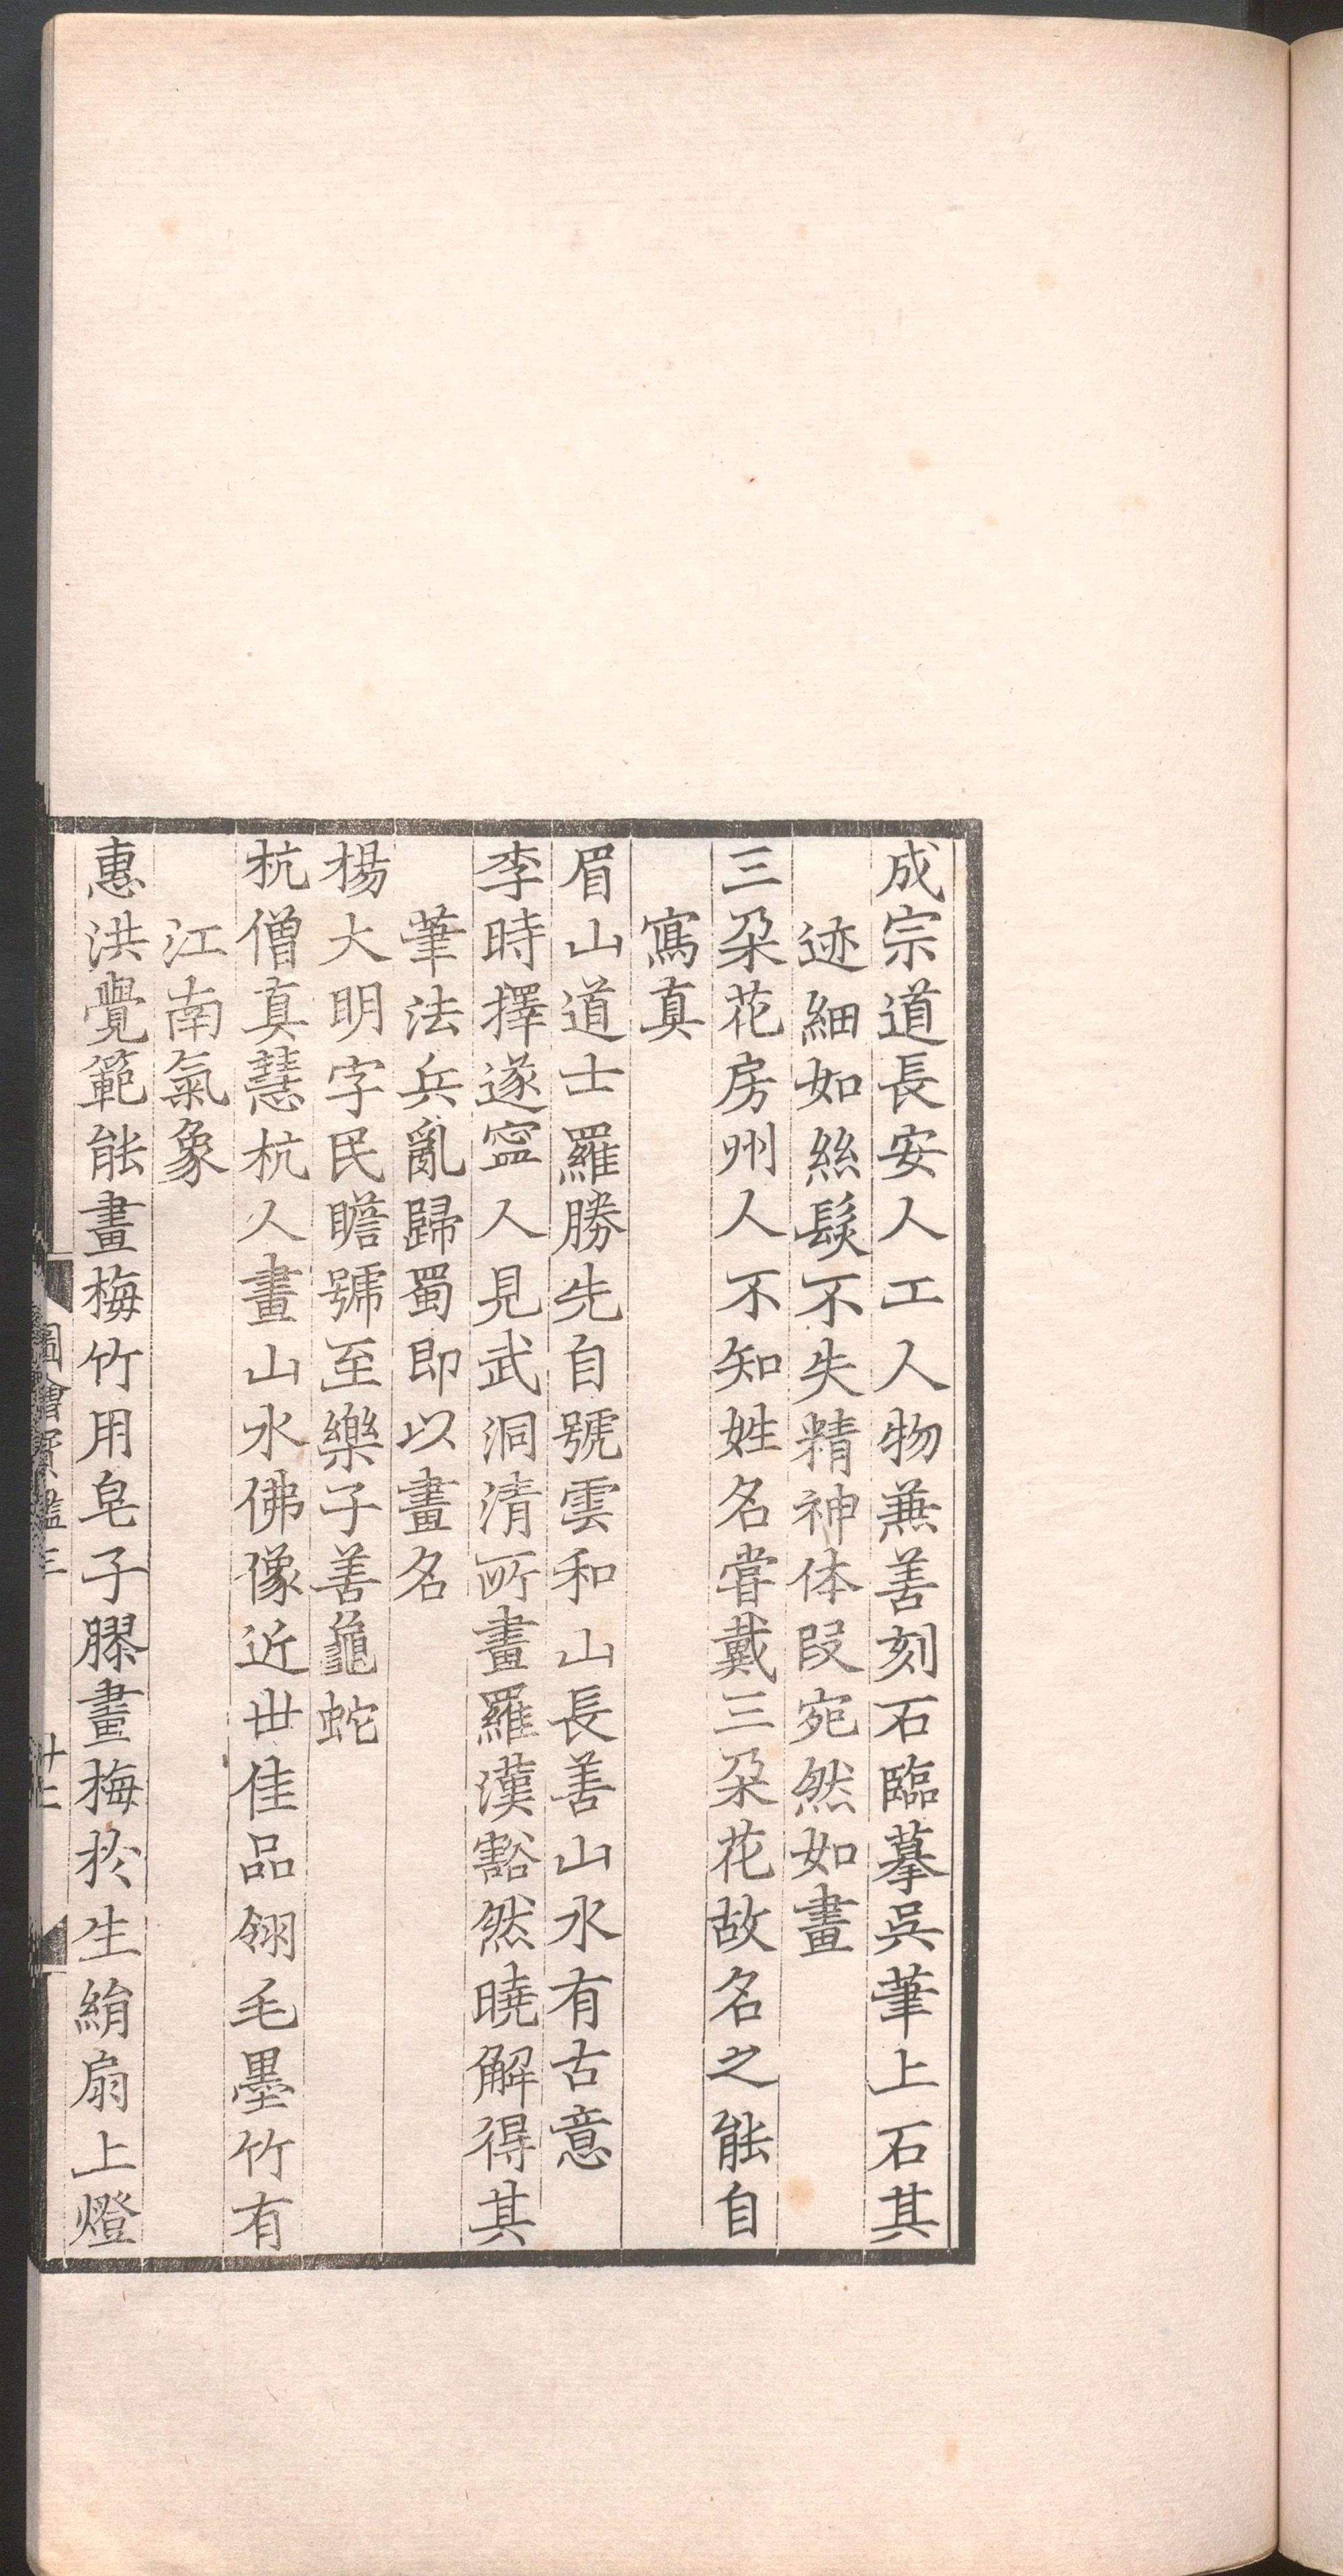 成宗道長安人工人物兼善刻石臨摹吳筆上石其
迹細如絲髮不失精神体段宛然如畫
三朵花房州人不知姓名甞戴三朵花故名之能自
寫真
眉山道士羅勝先自號雲和山長善山水有古意
李時擇遂寧人見武洞清所畫羅漢豁然曉解得其
筆法兵亂歸蜀即以畫名
楊大明字民瞻號至樂子善龜蛇
杭僧真慧杭人畫山水佛像近世佳品翎毛墨竹有
江南氣象
惠洪覺範能畫梅竹用皂子膠畫梅於生絹扇上燈
圖繪寶鑑三